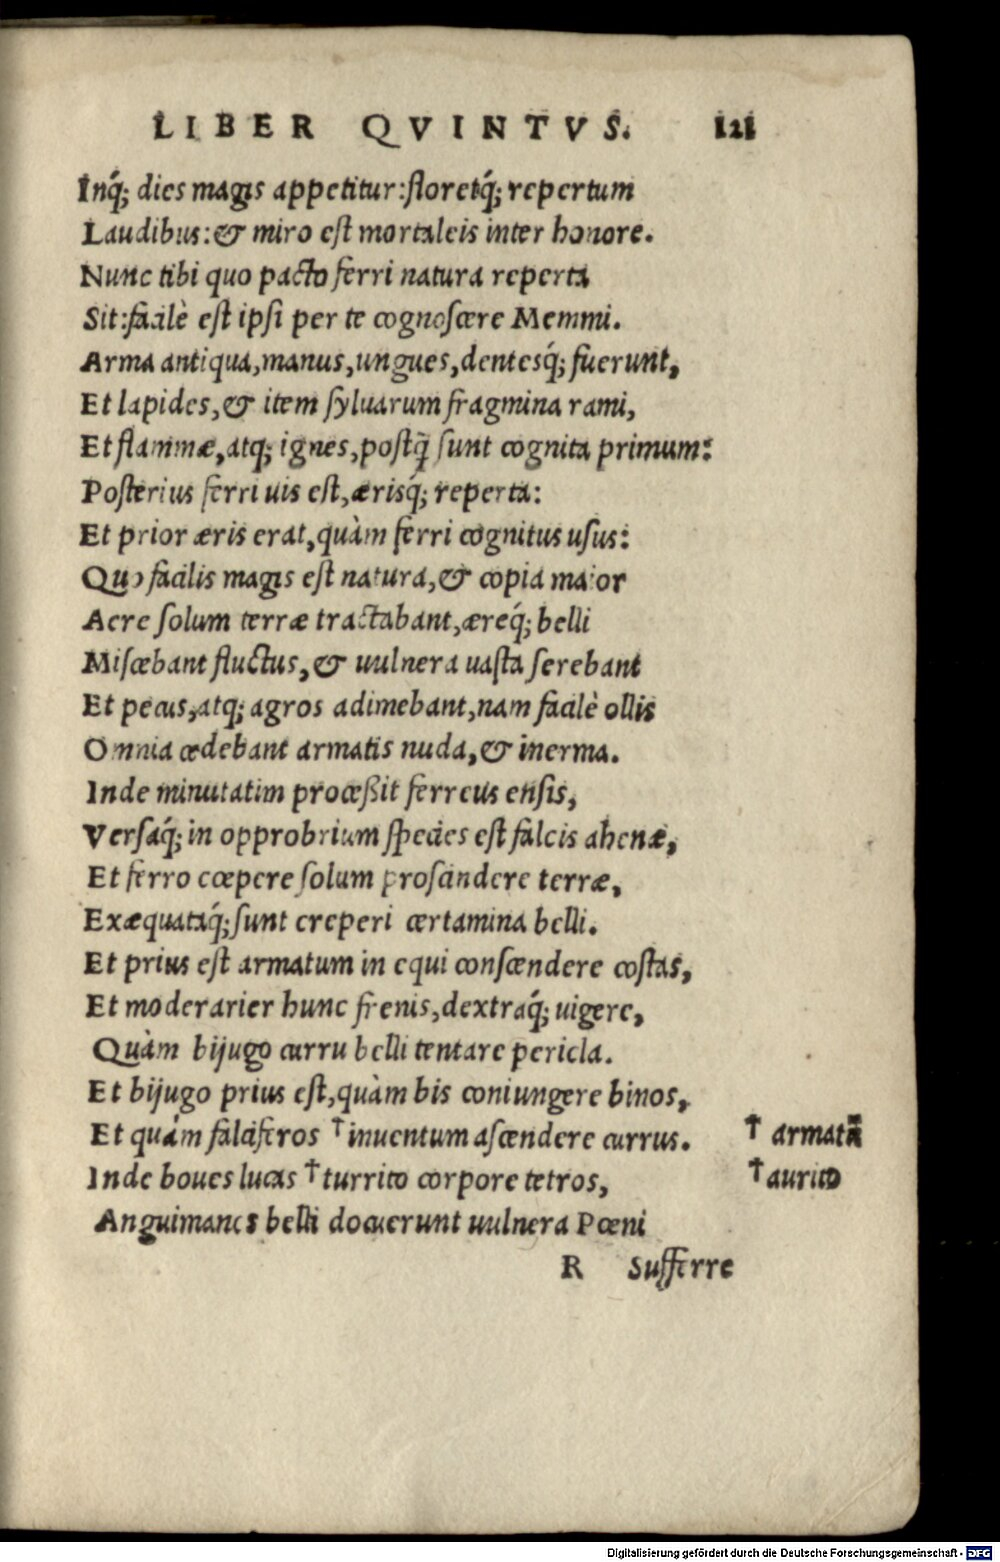 LIBER QVINTVS. 121
Inq́; dies magis appetitur:floretq́; repertum
Laudibus:& miro est mortaleis inter honore.
Nunc tibi quo pacto ferri natura reperta
Sit:facilè est ipsi per te cognoscere Memmi.
Arma antiqua,manus,ungues,dentesq́; fuerunt,
Et lapides,& item syluarum fragmina rami,
Et flammæ,atq; ignes,postq̃ sunt cognita primum:
Posterius ferri uis est,ærisq́; reperta:
Et prior æris erat,quàm ferri cognitus usus:
Quo facilis magis est natura,& copia maior
Aere solum terræ tractabant,æreq́; belli
Miscebant fluctus,& uulnera uasta serebant
Et pecus,atq; agros adimebant,nam facilè ollis
Omnia cedebant armatis nuda,& inerma.
Inde minutatim processit ferreus ensis,
Versaq́; in opprobrium species est falcis ahenæ,
Et ferro cœpere solum proscindere terræ,
Exæquataq́; sunt creperi certamina belli.
Et prius est armatum in equi conscendere costas,
Et moderarier hunc frenis,dextraq́; uigere,
Quàm bijugo curru belli tentare pericla.
Et bijugo prius est,quàm bis coniungere binos,
Et quàm falciferos †inuentum ascendere currus. † armatũ
Inde boues lucas †turrito corpore tetros, †aurito
Anguimanes belli docuerunt uulnera Pœni
R Sufferre
Digitalisierung gefördert durch die Deutsche Forschungsgemeinschaft - DFG